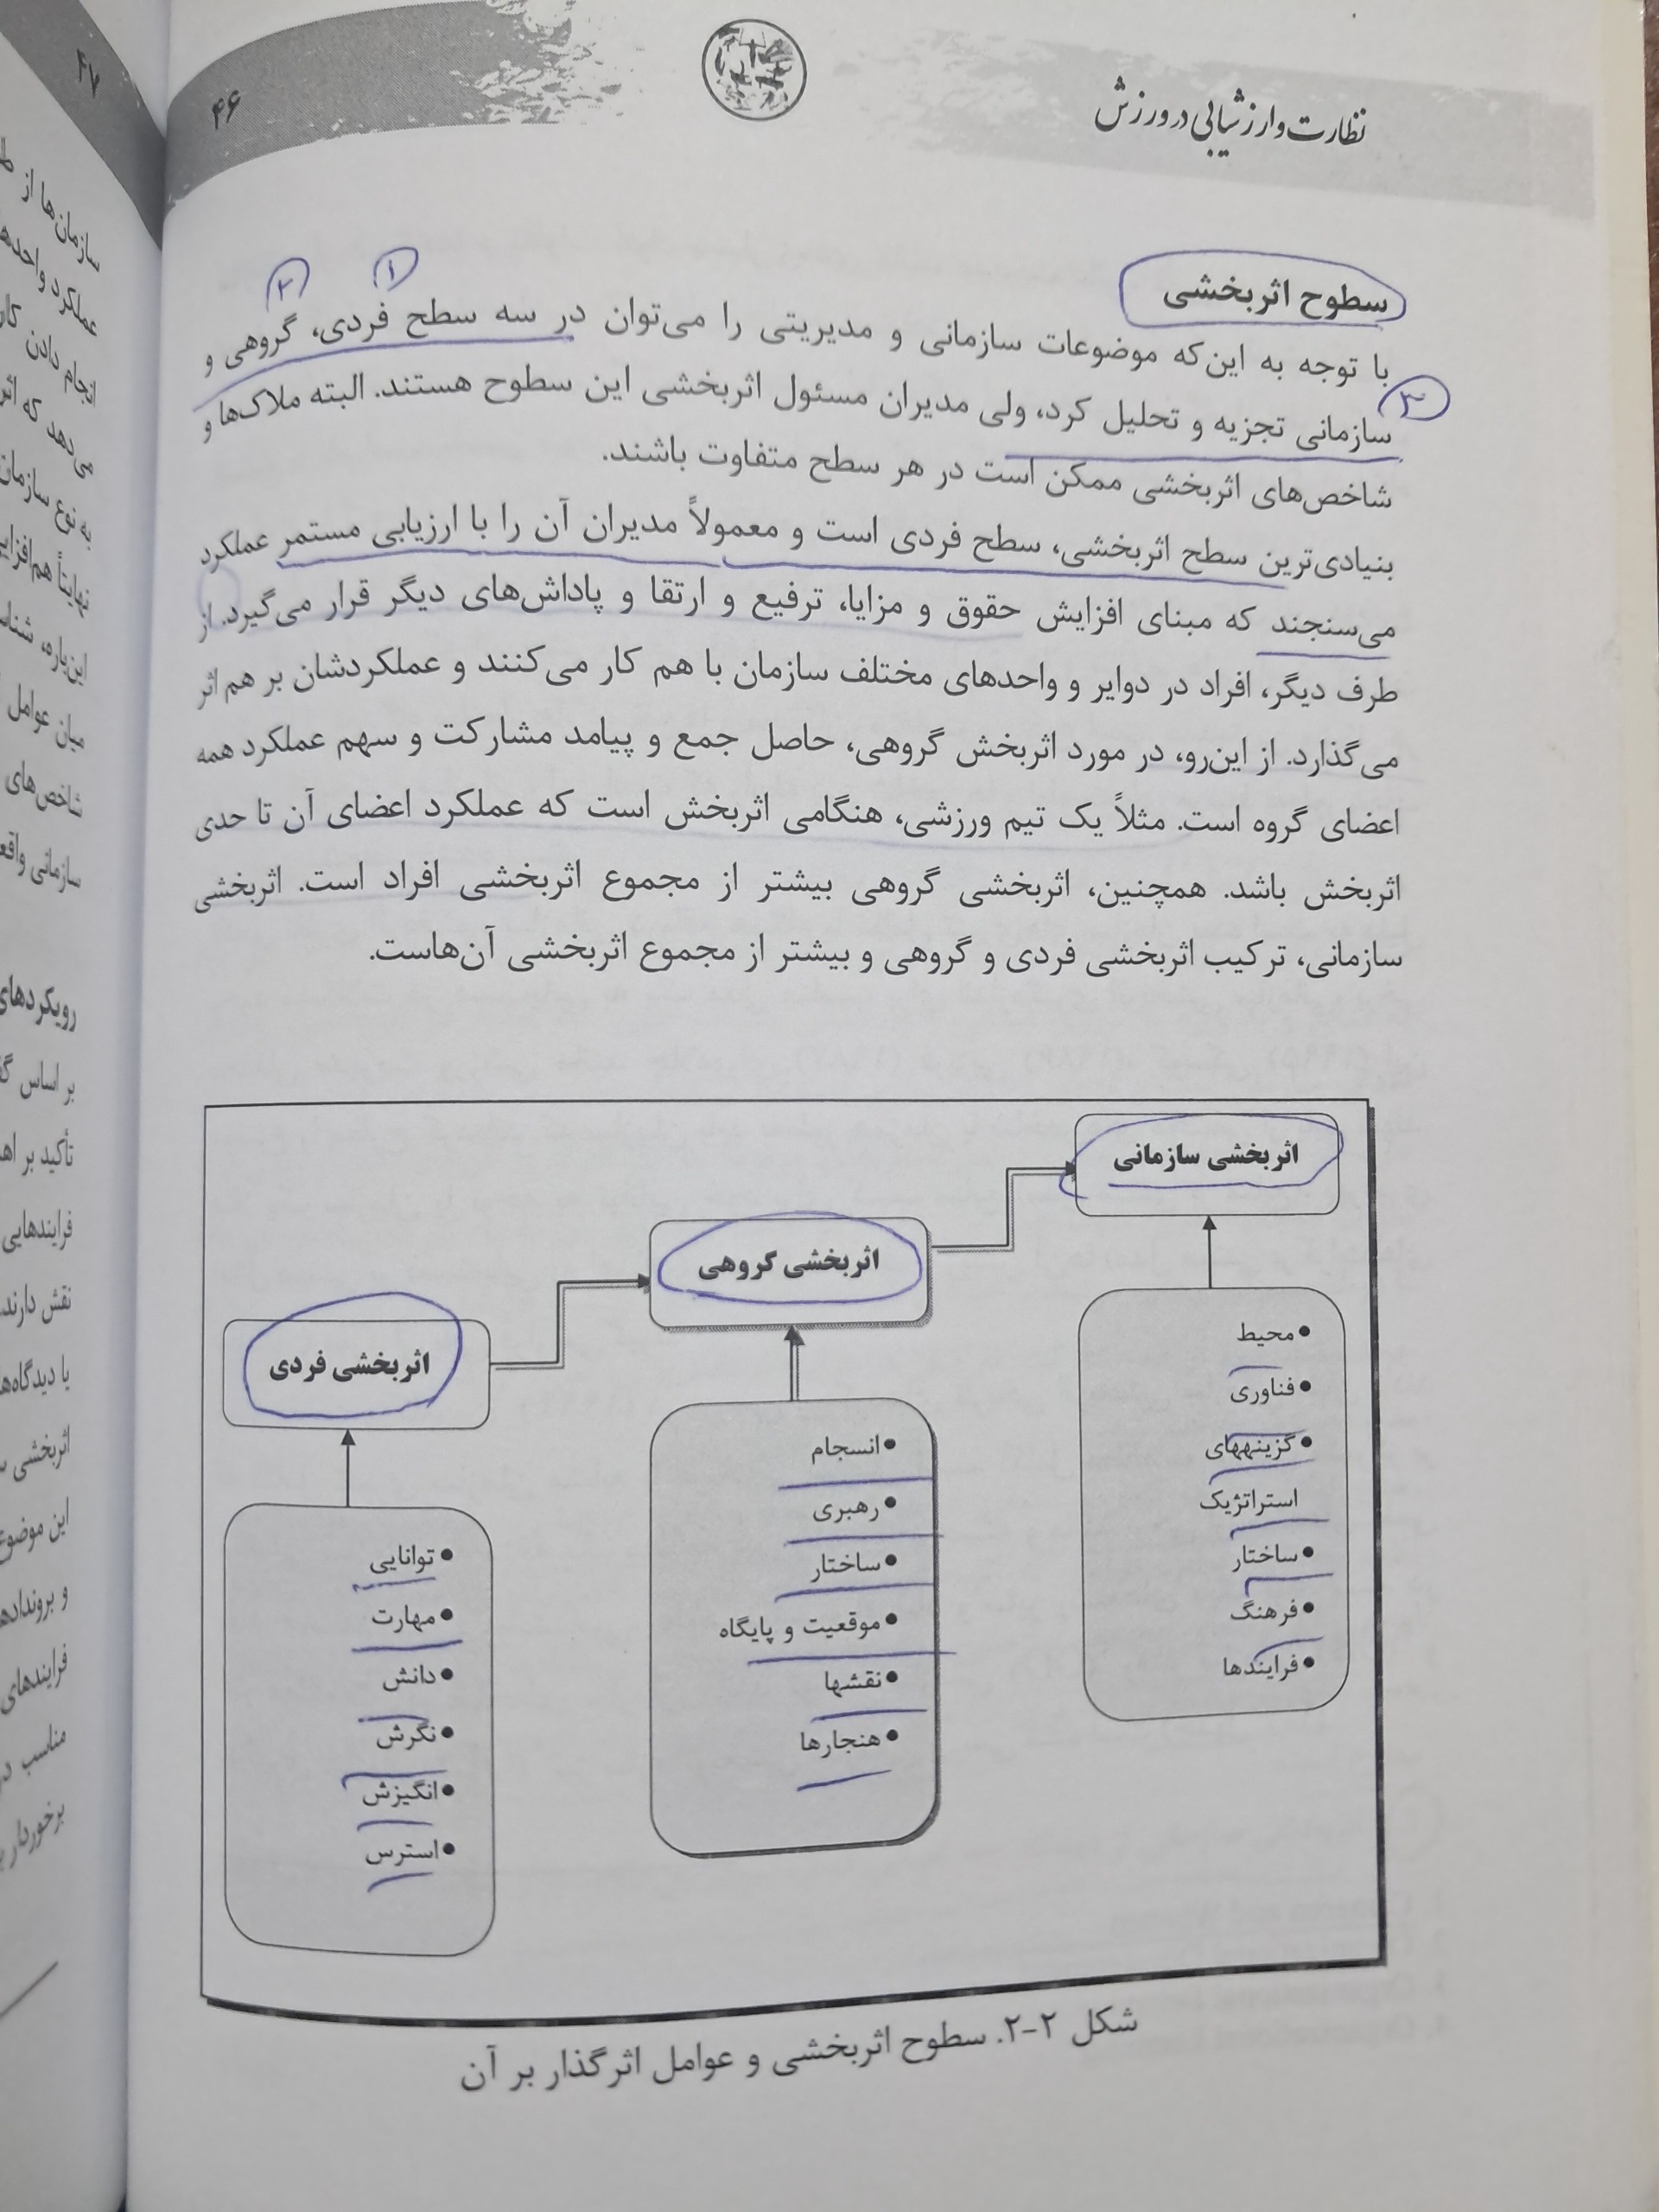 نظارت و ارزشیابی در ورزش
۴۶
سطوح اثربخشی
۱
۲
با توجه به این‌که موضوعات سازمانی و مدیریتی را می‌توان در سه سطح فردی، گروهی و
۳
سازمانی تجزیه و تحلیل کرد، ولی مدیران مسئول اثربخشی این سطوح هستند. البته ملاک‌ها و
شاخص‌های اثربخشی ممکن است در هر سطح متفاوت باشند.
بنیادی‌ترین سطح اثربخشی، سطح فردی است و معمولاً مدیران آن را با ارزیابی مستمر عملکرد
می‌سنجند که مبنای افزایش حقوق و مزایا، ترفیع و ارتقا و پاداش‌های دیگر قرار می‌گیرد. از
طرف دیگر، افراد در دوایر و واحدهای مختلف سازمان با هم کار می‌کنند و عملکردشان بر هم اثر
می‌گذارد. از این‌رو، در مورد اثربخش گروهی، حاصل جمع و پیامد مشارکت و سهم عملکرد همه
اعضای گروه است. مثلاً یک تیم ورزشی، هنگامی اثربخش است که عملکرد اعضای آن تا حدی
اثربخش باشد. همچنین، اثربخشی گروهی بیشتر از مجموع اثربخشی افراد است. اثربخشی
سازمانی، ترکیب اثربخشی فردی و گروهی و بیشتر از مجموع اثربخشی آن‌هاست.
اثربخشی سازمانی
• محیط
• فناوری
• گزینههای
استراتژیک
• ساختار
• فرهنگ
• فرایندها
اثربخشی گروهی
• انسجام
• رهبری
• ساختار
• موقعیت و پایگاه
• نقشها
• هنجارها
اثربخشی فردی
• توانایی
• مهارت
• دانش
• نگرش
• انگیزش
• استرس
شکل ۲-۲. سطوح اثربخشی و عوامل اثرگذار بر آن
۴۷
سازمان‌ها از
عملکرد
انجام دادن
می‌دهد که
به نوع سازمان
نهایتاً
این‌باره،
میان عوامل
شاخص‌های
سازمانی
رویکردهای
بر اساس
تأکید بر
فرایندهایی
نقش دارند
یا
اثربخشی
این موضوع
و
فرایندهای
مناسب
برخوردار